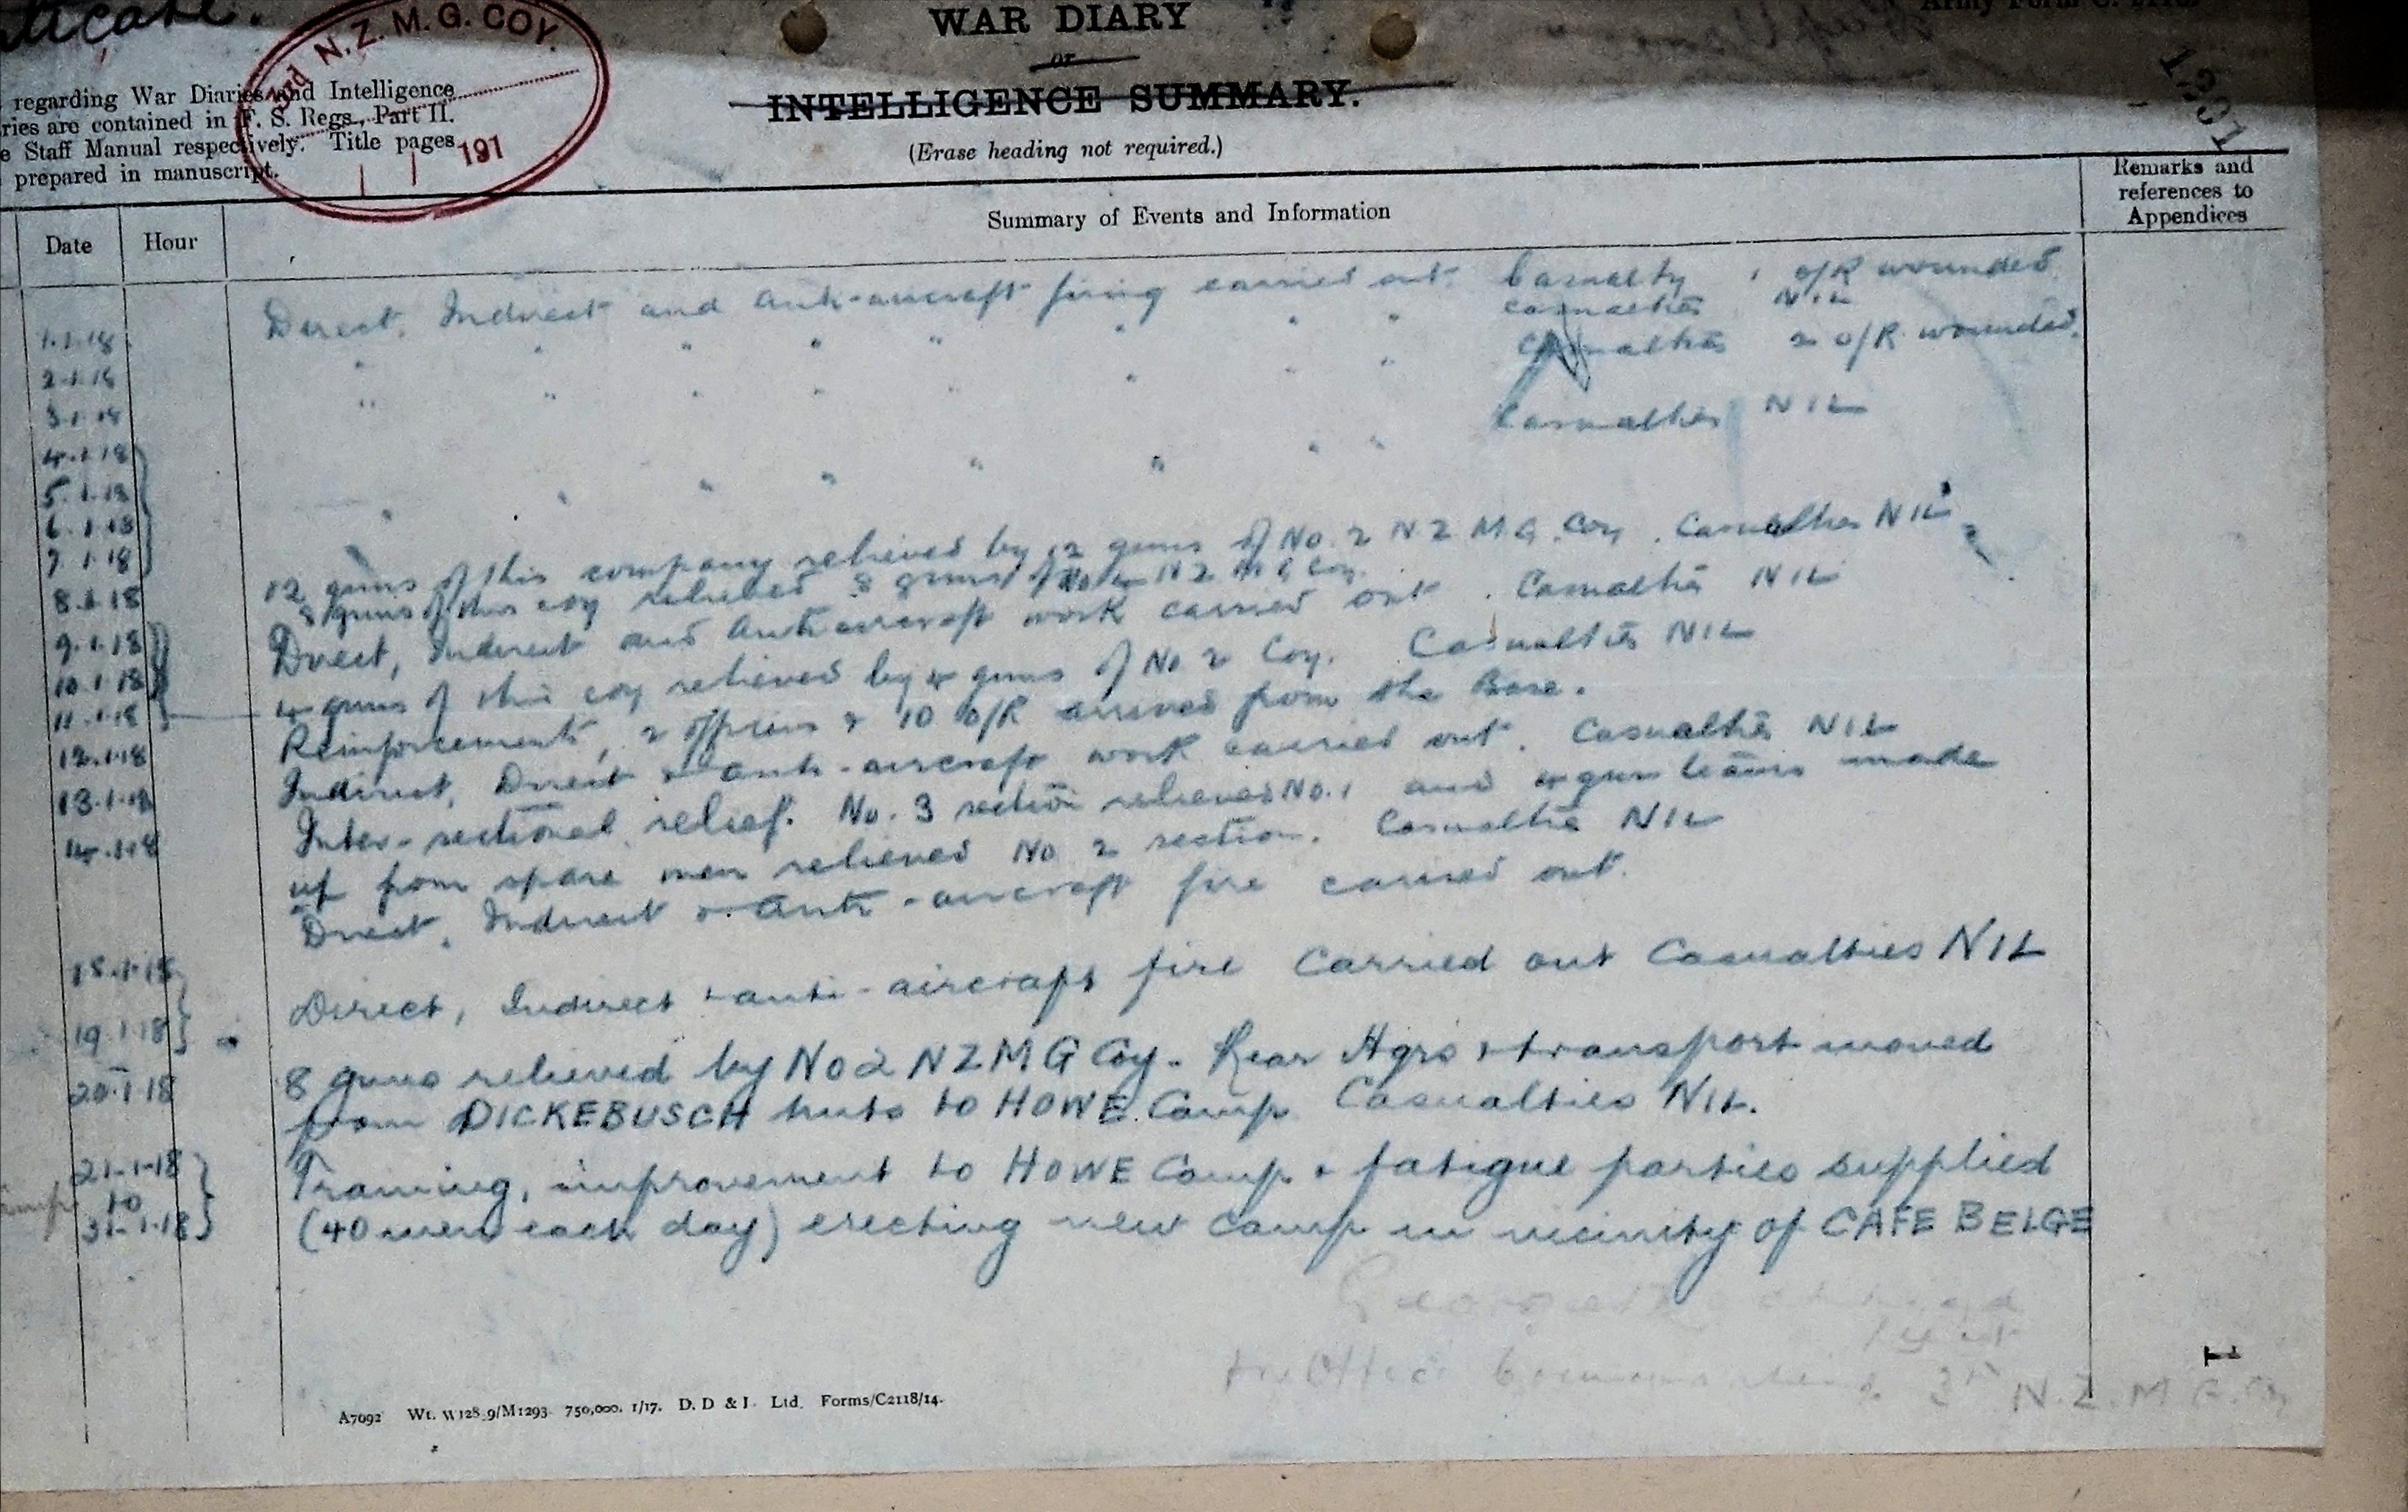 Army Form C. 2118.
WAR DIARY
or
INTELLIGENCE SUMMARY.
(Erase heading not required.)
3rd N.Z.M.G. COY.
191
1301
regarding War Diaries and Intelligence
ries are contained in F. S. Regs., Part II.
e Staff Manual respectively. Title pages
prepared in manuscript.
Date Hour Summary of Events and Information Remarks and references to Appendices
1.1.18 Direct, Indirect and anti-aircraft firing carried out. Casualty 1 o/R wounded
2.1.18 " " " " " " " " casualties NIL
3.1.18 " " " " " " " " Casualties 2 o/R wounded.
4.1.18
5.1.18
6.1.18
7.1.18 " " " " " " " " Casualties NIL
8.1.18 12 guns of this company relieved by 12 guns of No. 2 N Z M G. Coy. Casualties NIL
8 guns of this coy relieved 8 guns of No 4 N Z M G Coy.
9.1.18 Direct, Indirect and Anti aircraft work carried out. Casualties NIL
10.1.18
11.1.18 4 guns of this coy relieved by 4 guns of No 2 Coy. Casualties NIL
12.1.18 Reinforcements, 2 officers & 10 o/R arrived from the Base.
13.1.18 Indirect, Direct & anti-aircraft work carried out. Casualties NIL
14.1.18 Inter-sectional relief. No. 3 section relieved No. 1 and 4 gun teams made
up from spare men relieved No 2 section. Casualties NIL
Direct, Indirect & anti-aircraft fire carried out.
15.1.18
19.1.18 Direct, Indirect & anti-aircraft fire carried out Casualties NIL
20.1.18 8 guns relieved by No 2 NZMG Coy. Rear Hqrs & transport moved
from DICKEBUSCH huts to HOWE Camp Casualties NIL.
21.1.18 Training, improvement to HOWE Camp & fatigue parties supplied
to
31.1.18 (40 men each day) erecting new camp in vicinity of CAFE BELGE
3rd N.Z.M.G. Coy
A7092 Wt. W128.9/M1293 750,000. 1/17. D. D & L Ltd. Forms/C2118/14.